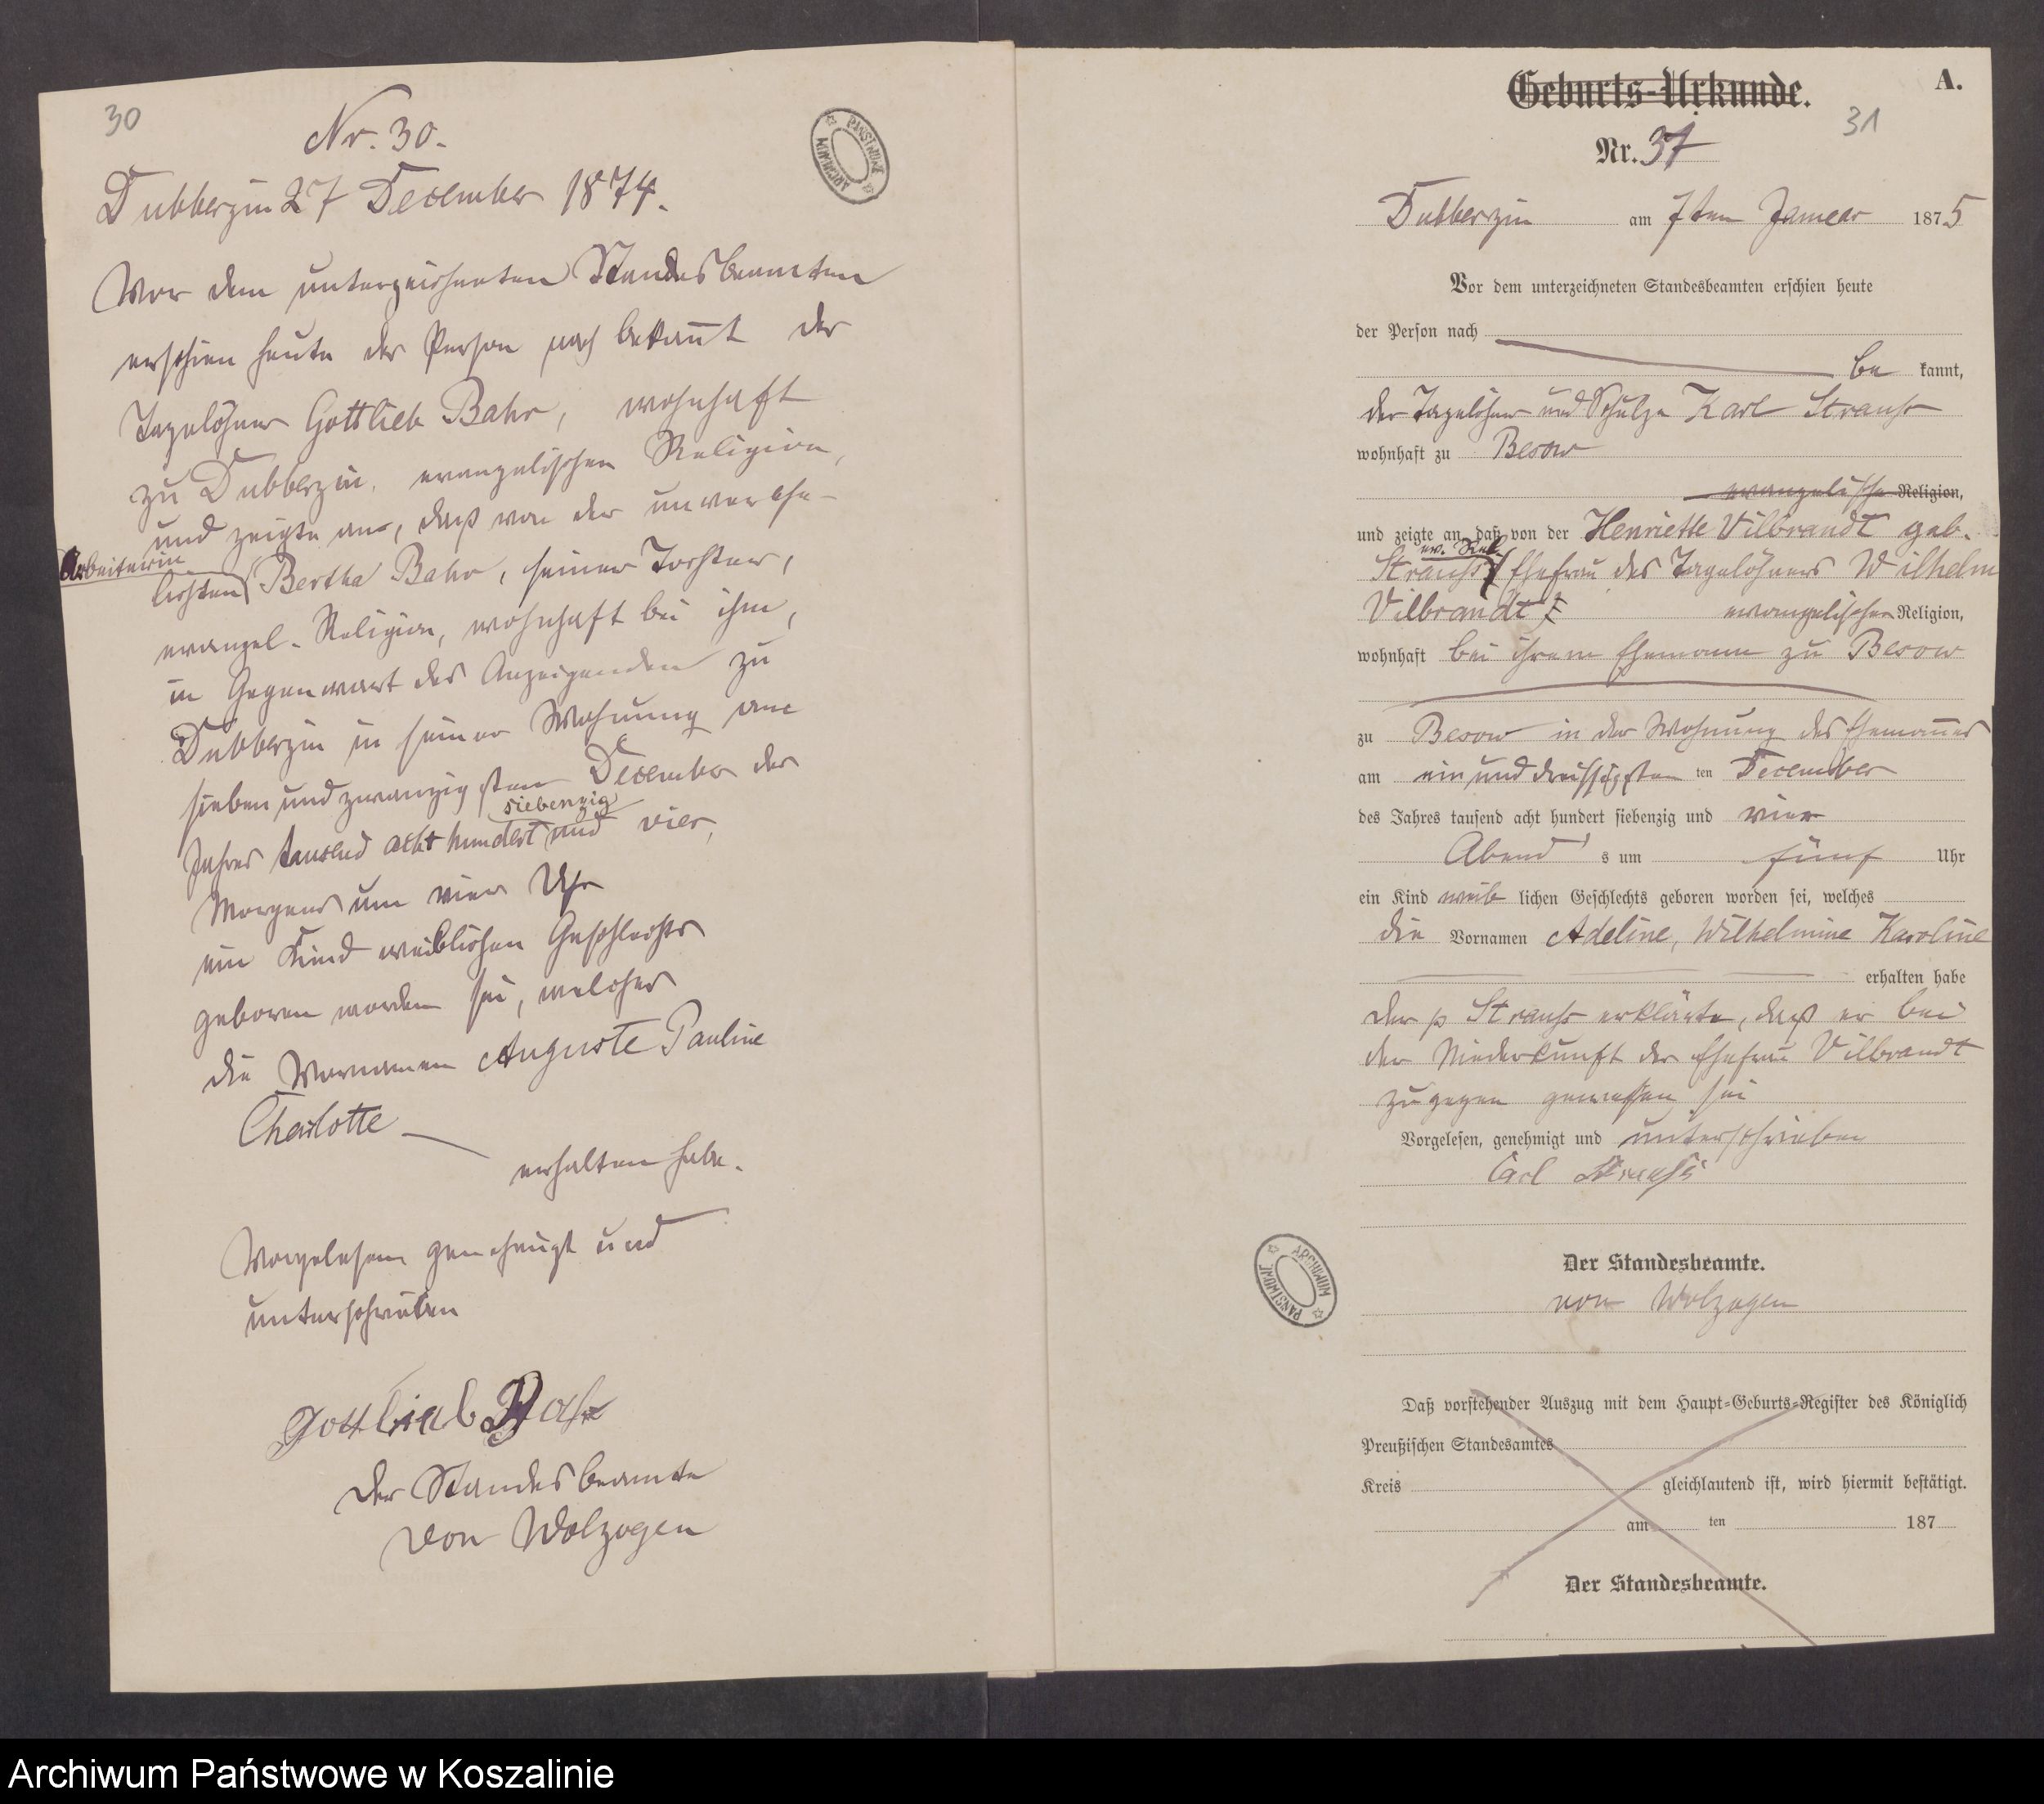 30
Nr. 30.
Dubberzin 27 December 1874.
Vor dem unterzeichneten Standesbeamten
erschien heute der Person nach bekannt der
Tagelöhner Gottlieb Bahr, wohnhaft
zu Dubberzin, evangelischen Religion,
und zeigte an, daß von der unverehe-
Arbeiterin
lichten Bertha Bahr, seiner Tochter,
evangel. Religion, wohnhaft bei ihm,
in Gegenwart des Anzeigenden zu
Dubberzin in seiner Wohnung am
sieben und zwanzigsten December des
siebenzig
Jahres tausend acht hundert und vier,
Morgens um vier Uhr
ein Kind weiblichen Geschlechts
geboren worden sei, welches
die Vornamen Auguste Pauline
Charlotte
erhalten habe.
Vorgelesen genehmigt und
unterschrieben
Gottlieb Bahr
Der Standesbeamte
von Wolzogen
ARCHIWUM PAŃSTWOWE
Geburts-Urkunde.
A.
31
Nr. 37
Dubberzin am 7ten Januar 1875
Vor dem unterzeichneten Standesbeamten erschien heute
der Person nach
be kannt,
der Tagelöhner und Schulze Karl Strauss
wohnhaft zu Besow
evangelische Religion,
und zeigte an, daß von der Henriette Vilbrandt geb.
ev. Rel.
Strauss Ehefrau des Tagelöhners Wilhelm
Vilbrandt evangelischer Religion,
wohnhaft bei ihrem Ehemann zu Besow
zu Besow in der Wohnung des Ehemannes
am ein und dreissigsten ten December
des Jahres tausend acht hundert siebenzig und vier
Abend s um fünf Uhr
ein Kind weib lichen Geschlechts geboren worden sei, welches
die Vornamen Adeline, Wilhelmine Karoline
erhalten habe
Der p Strauss erklärte, daß er bei
der Niederkunft der Ehefrau Vilbrandt
zugegen gewesen sei
Vorgelesen, genehmigt und unterschrieben
Carl Strauss
ARCHIWUM PAŃSTWOWE
Der Standesbeamte.
von Wolzogen
Daß vorstehender Auszug mit dem Haupt-Geburts-Register des Königlich
Preußischen Standesamtes
Kreis gleichlautend ist, wird hiermit bestätigt.
am ten 187
Der Standesbeamte.
Archiwum Państwowe w Koszalinie